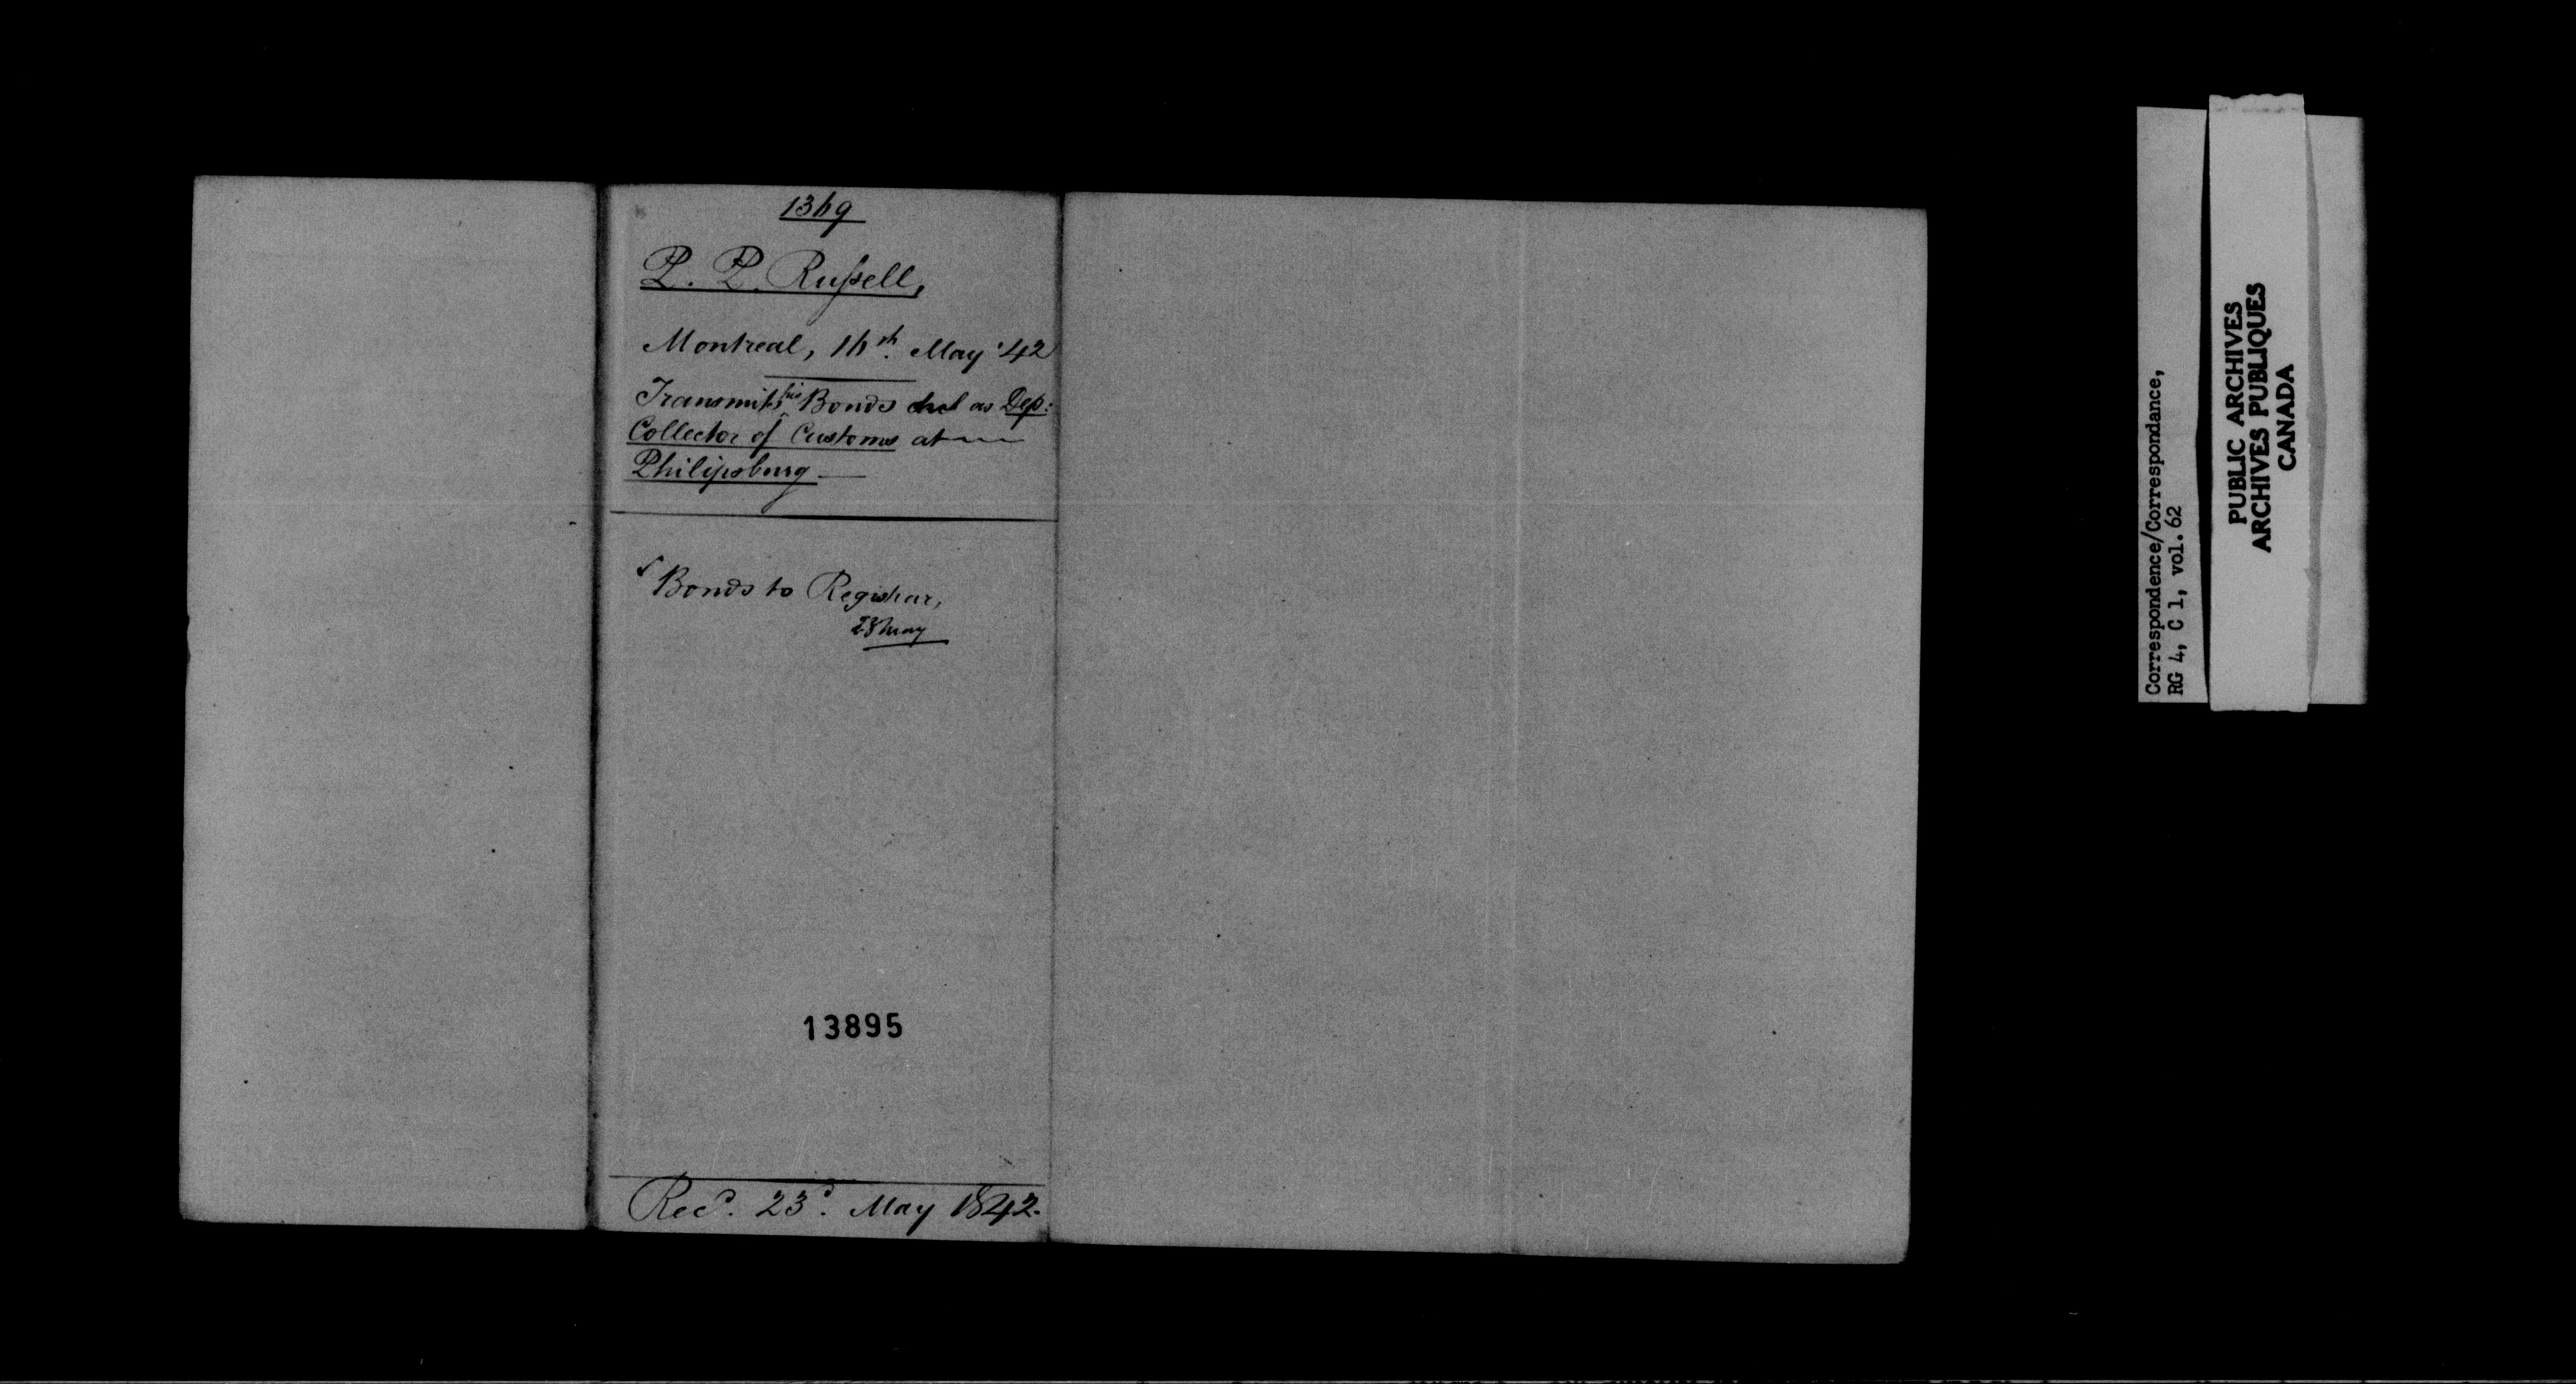 1369
P. P. Russell,
Montreal, 16th. May '42
Transmits his Bonds as Dep:
Collector of Customs at
Philipsburg
Bonds to Registrar,
23 May
13895
Recd. 23d. May 1842.
Correspondence/Correspondance,
RG 4, C 1, vol. 62
PUBLIC ARCHIVES
ARCHIVES PUBLIQUES
CANADA